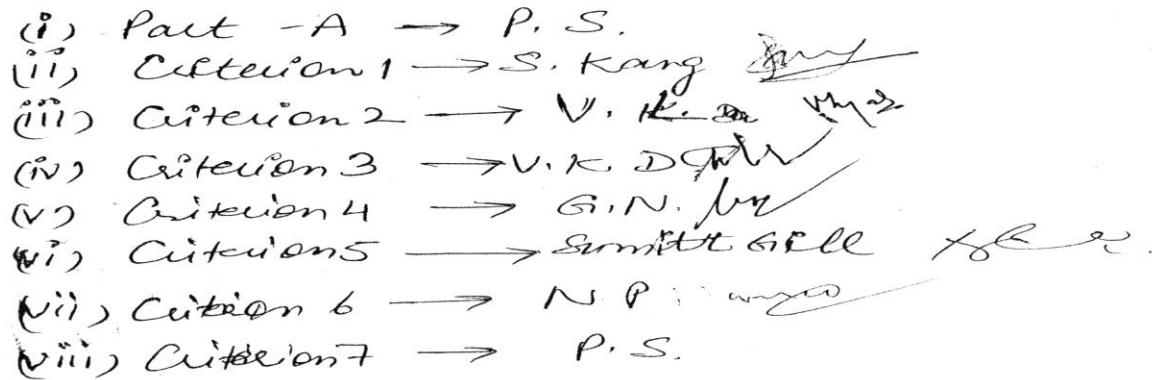 (i) Part - A → P. S.
(ii) Criterion 1 → S. Kang
(iii) Criterion 2 → V. K.
(iv) Criterion 3 → V. K. D
(v) Criterion 4 → G. N.
(vi) Criterion 5 → Sumitt Gill
(vii) Criterion 6 → N P.
(viii) Criterion 7 → P. S.